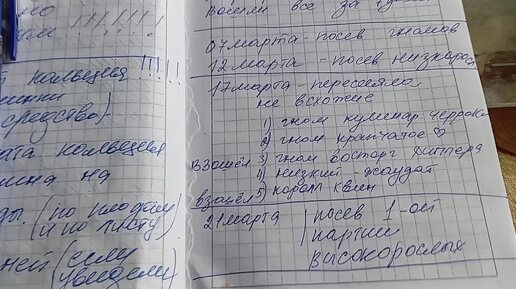 !!!!!!
кольцевая !!!!!
средство)
кольцевая
на
(по плодам
и по листу)
(силу
увидели)
Взошли все за
07 марта - посев гномов
12 марта - посев низкорос
17 марта пересеяла
не всхожие
1) гном куминар черрокл
2) гном крапчатое ♡
взошёл 3) гном восторг Диттера
4) низкий - жаудат
взошёл 5) король квин
21 марта посев 1-ой
партии
високорослых